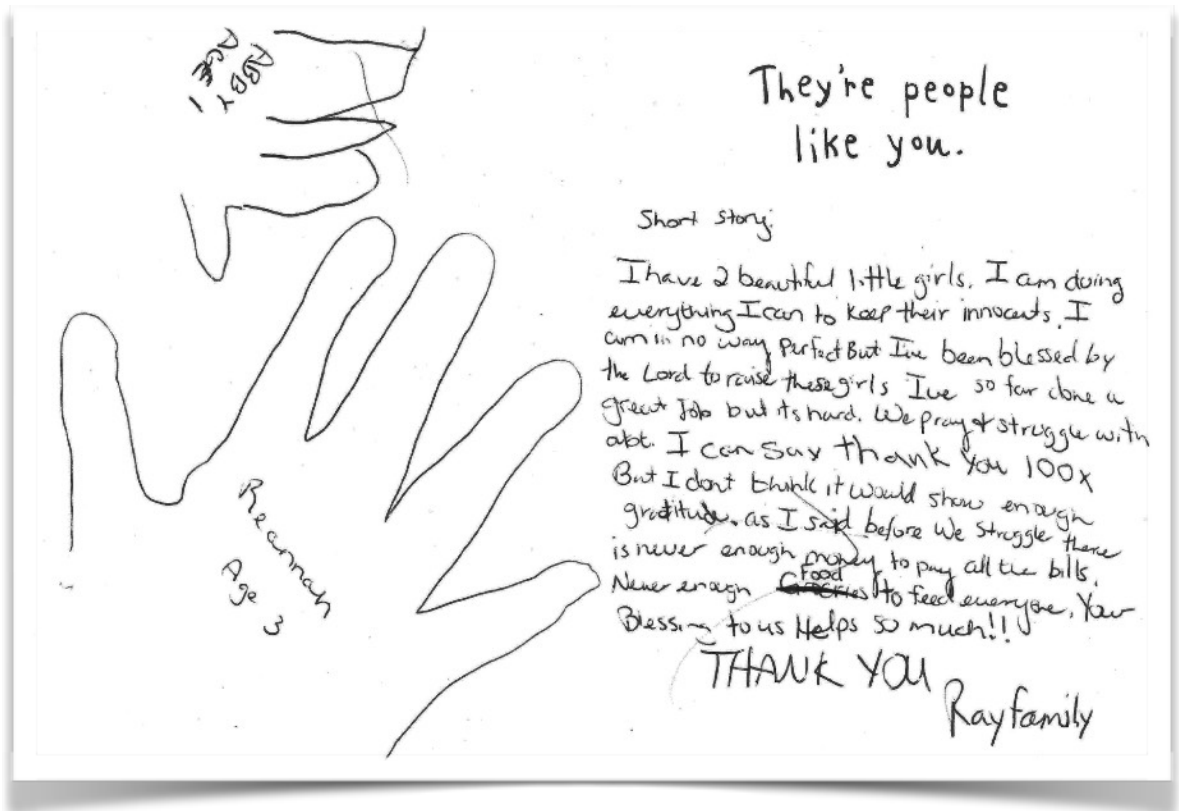 ABBY
AGE 1
Reannah
Age 3
They're people
like you.
Short story:
I have 2 beautiful little girls. I am doing
everything I can to keep their innocents. I
am in no way perfect But I've been blessed by
the Lord to raise these girls I've so far done a
great Job but its hard. We pray & struggle with
alot. I can say thank you 100x
But I dont think it would show enough
gratitude. as I said before we struggle there
is never enough money to pay all the bills.
Never enough food to feed everyone. Your
Blessing to us Helps so much!!
THANK YOU
Ray family